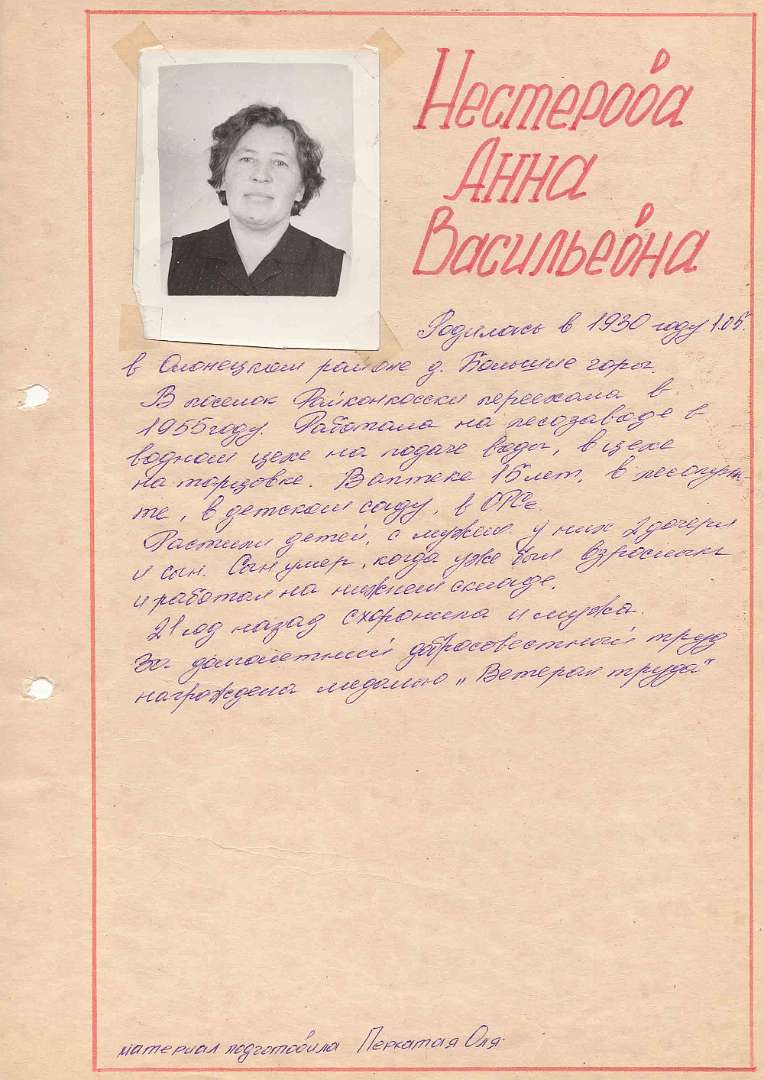 Нестерова
Анна
Васильевна
Родилась в 1930 году 1.05.
в Олонецком районе д. Большие горы.
В поселок Райконкоски переехала в
1955 году. Работала на лесозаводе в
водном цехе на подаче воды, в цехе
на торцовке. В аптеке 15 лет, в лесопунк-
те, в детском саду, в ОРСе.
Растили детей, с мужем у них 2 дочери
и сын. Сын умер, когда уже был взрослым
и работал на нижнем складе.
21 год назад схоронила и мужа.
За долголетний добросовестный труд
награждена медалью „Ветеран труда"
материал подготовила Перкатая Оля